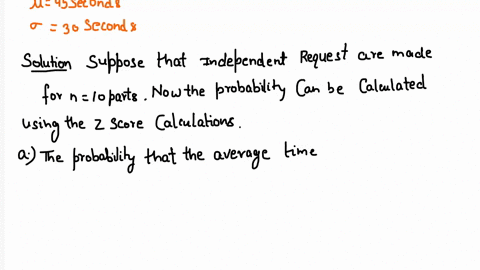 μ=45 Seconds
σ = 30 Seconds
Solution Suppose that Independent Request are made
for n=10 parts. Now the probability Can be Calculated
using the Z Score Calculations.
a.) The probability that the average time